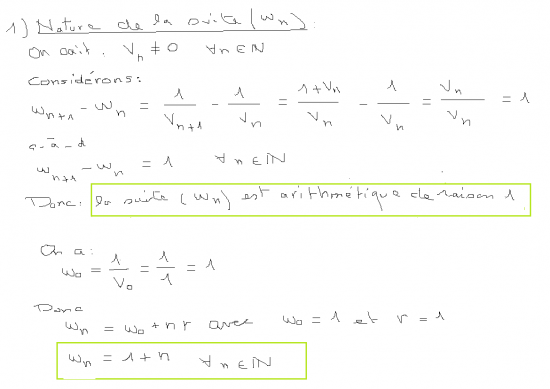 1) Nature de la suite (Wn):
On sait : Vn ≠ 0 ∀n∈ℕ
Considérons:
Wn+1 - Wn = 1/Vn+1 - 1/Vn = (1+Vn)/Vn - 1/Vn = Vn/Vn = 1
c-à-d
Wn+1 - Wn = 1 ∀n∈ℕ
Donc: la suite (Wn) est arithmétique de raison 1
On a:
W0 = 1/V0 = 1/1 = 1
Donc
Wn = W0 + nr avec W0 = 1 et r = 1
Wn = 1 + n ∀n∈ℕ